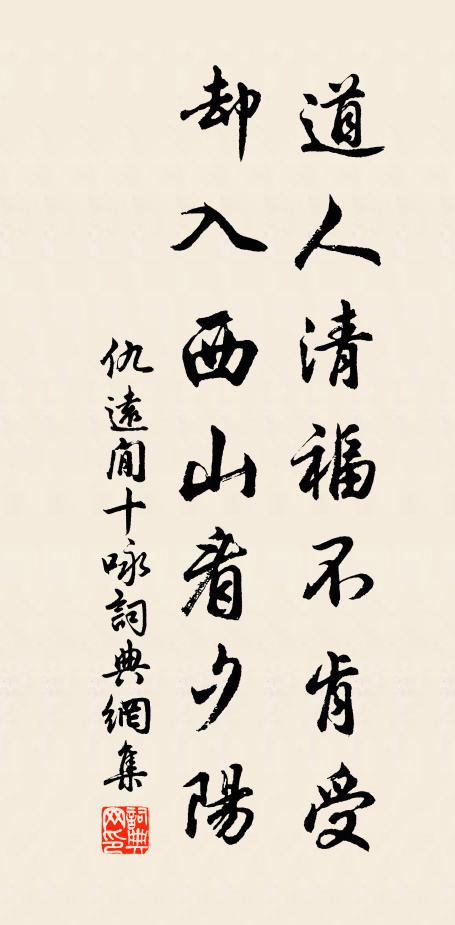 道人清福不肯受
却入西山看夕陽
仇遠閒十咏詞典網集
詞典網印